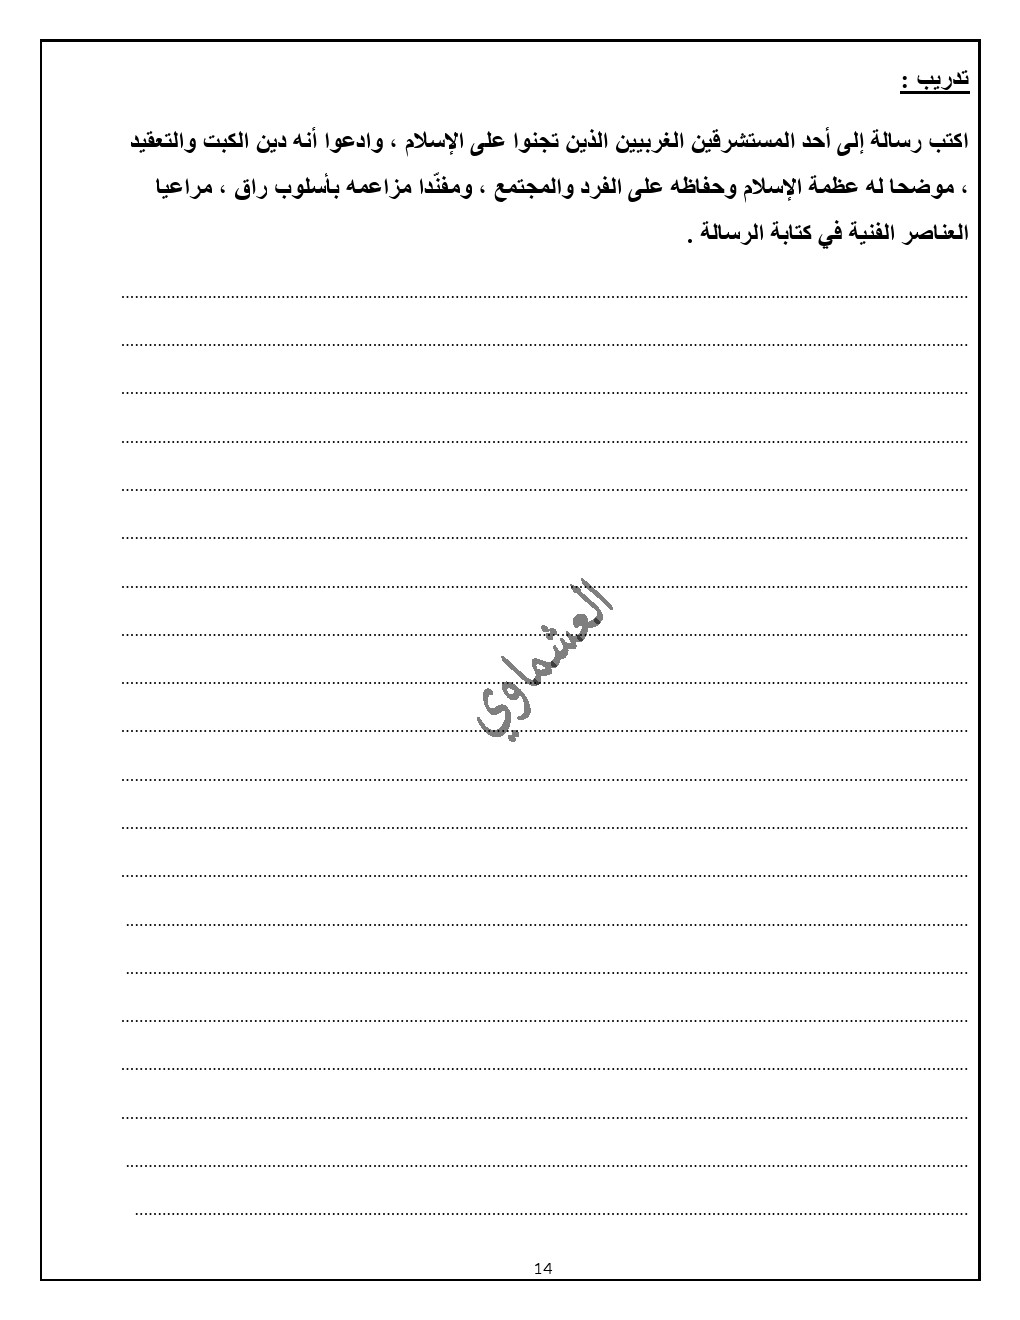 تدريب :
اكتب رسالة إلى أحد المستشرقين الغربيين الذين تجنوا على الإسلام ، وادعوا أنه دين الكبت والتعقيد
، موضحا له عظمة الإسلام وحفاظه على الفرد والمجتمع ، ومفنّدا مزاعمه بأسلوب راق ، مراعيا
العناصر الفنية في كتابة الرسالة .
العشماوي
14